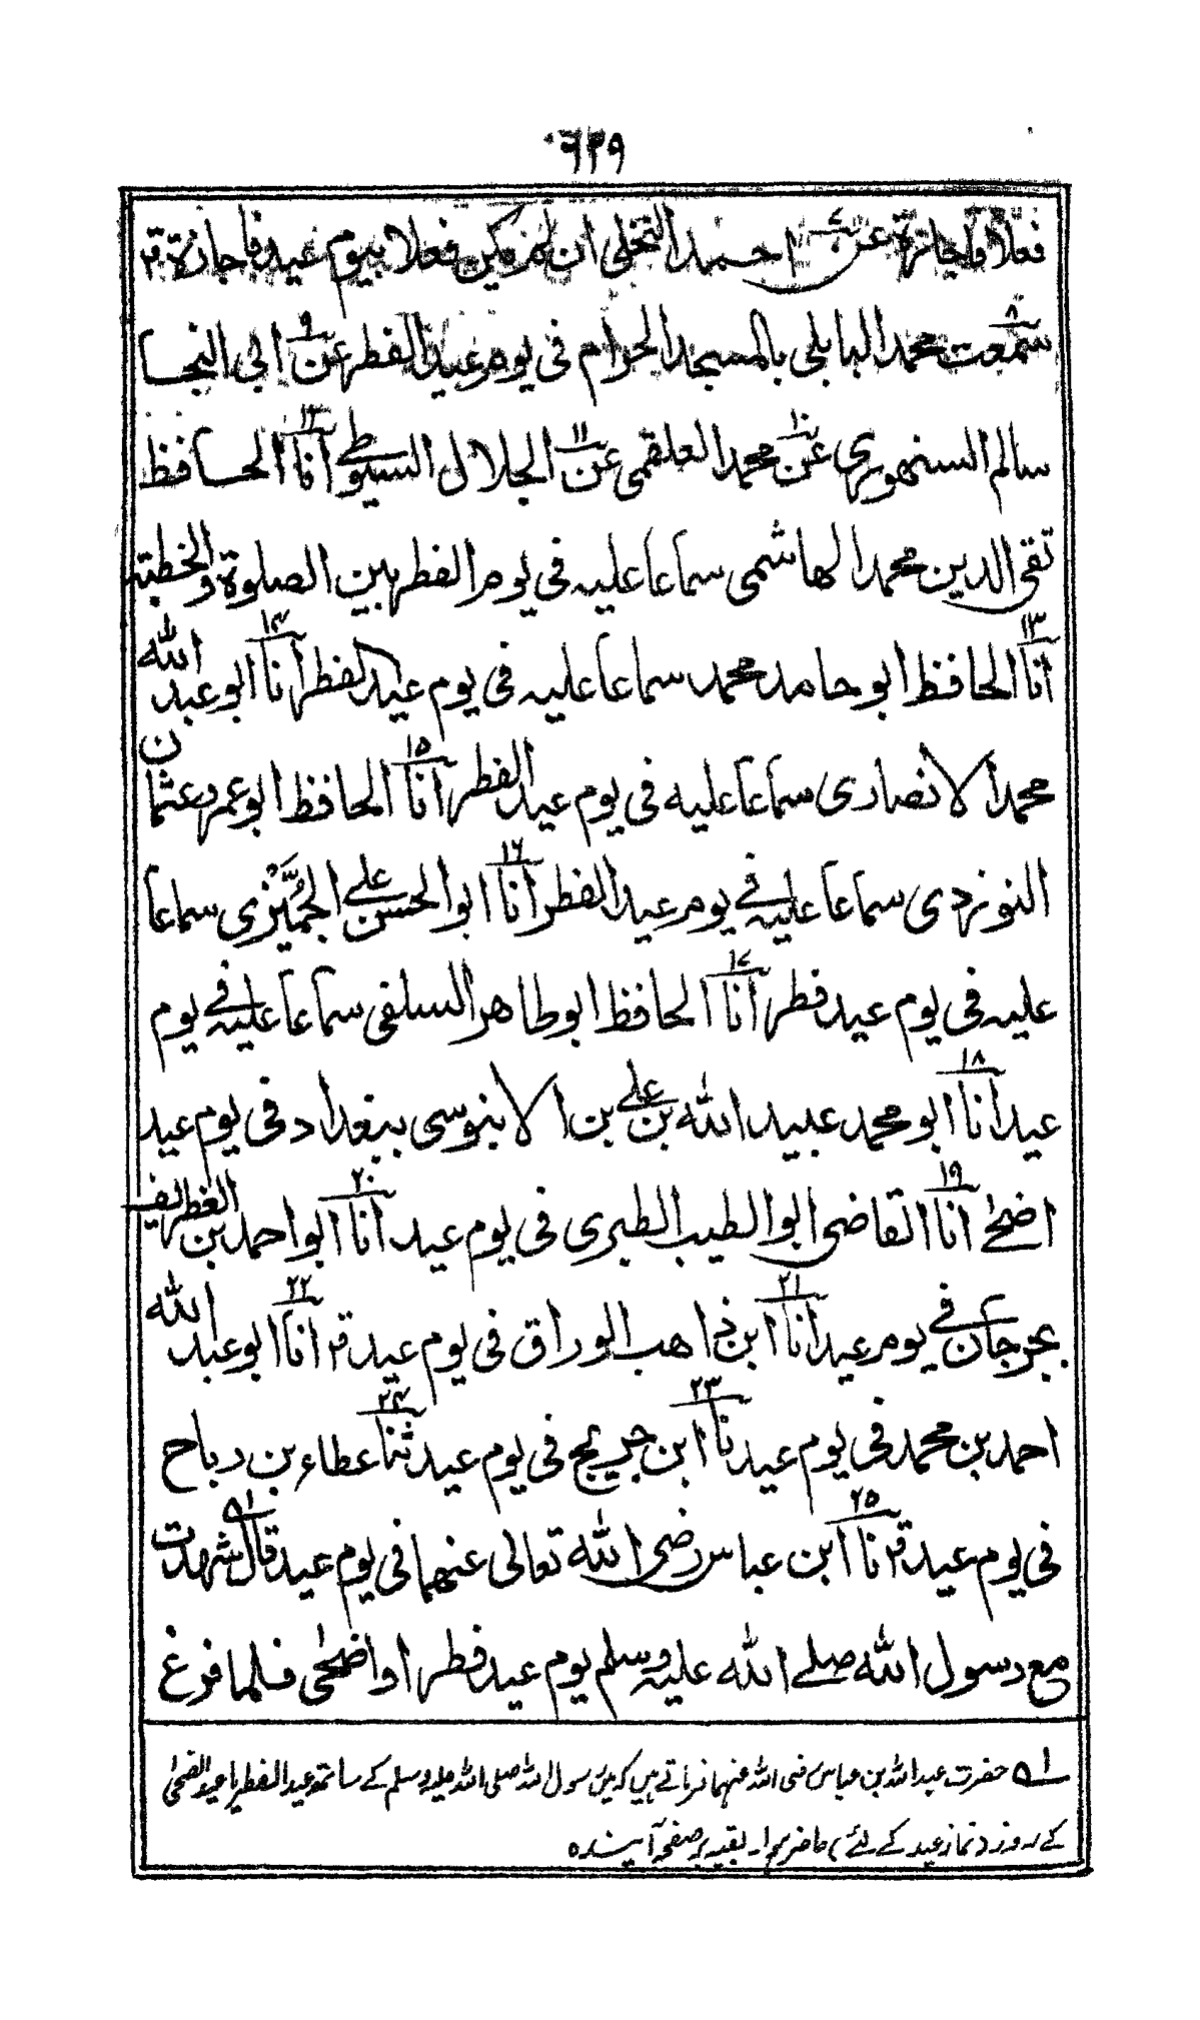 ٦٣٩
فعلا فاجازة عن احمد النخلي ان لم يكن فعلا بيوم عيد فاجازة قر
سمعت محمد البابلي بالمسجد الحرام في يوم عيد الفطر عن ابي النجا
سالم السنهوري عن محمد العلقمي عن الجلال السيوطي انا الحافظ
تقي الدين محمد الهاشمي سماعا عليه في يوم الفطر بين الصلوة والخطبة
انا الحافظ ابو حامد محمد سماعا عليه في يوم عيد الفطر انا ابو عبد الله
محمد الانصاري سماعا عليه في يوم عيد الفطر انا الحافظ ابو عمرو عثمان
النوزدي سماعا عليه في يوم عيد الفطر انا ابو الحسن علي الجُمَّيْزي سماعا
عليه في يوم عيد فطر انا الحافظ ابو طاهر السلفي سماعا عليه في يوم
عيد انا ابو محمد عبيد الله بن علي بن الابنوسي ببغداد في يوم عيد
اضحى انا القاضي ابو الطيب الطبري في يوم عيد انا ابو احمد بن الغطريف
بجرجان في يوم عيد انا ابن ذاهب الوراق في يوم عيد قر انا ابو عبد الله
احمد بن محمد في يوم عيد نا ابن جريج في يوم عيد ثنا عطاء بن رباح
في يوم عيد قر نا ابن عباس رضي الله تعالى عنهما في يوم عيد قال شهدت
مع رسول الله صلے الله عليه وسلم يوم عيد فطر او اضحى فلما فرغ
حضرت عبد الله بن عباس رضی الله عنهما فرماتے ہیں کہ میں رسول الله صلی الله علیہ وسلم کے ساتھ عید الفطر یا عید الضحیٰ
کے روز (نماز عید کے لئے) حاضر ہوا۔ بقیہ بر صفحہ آیندہ